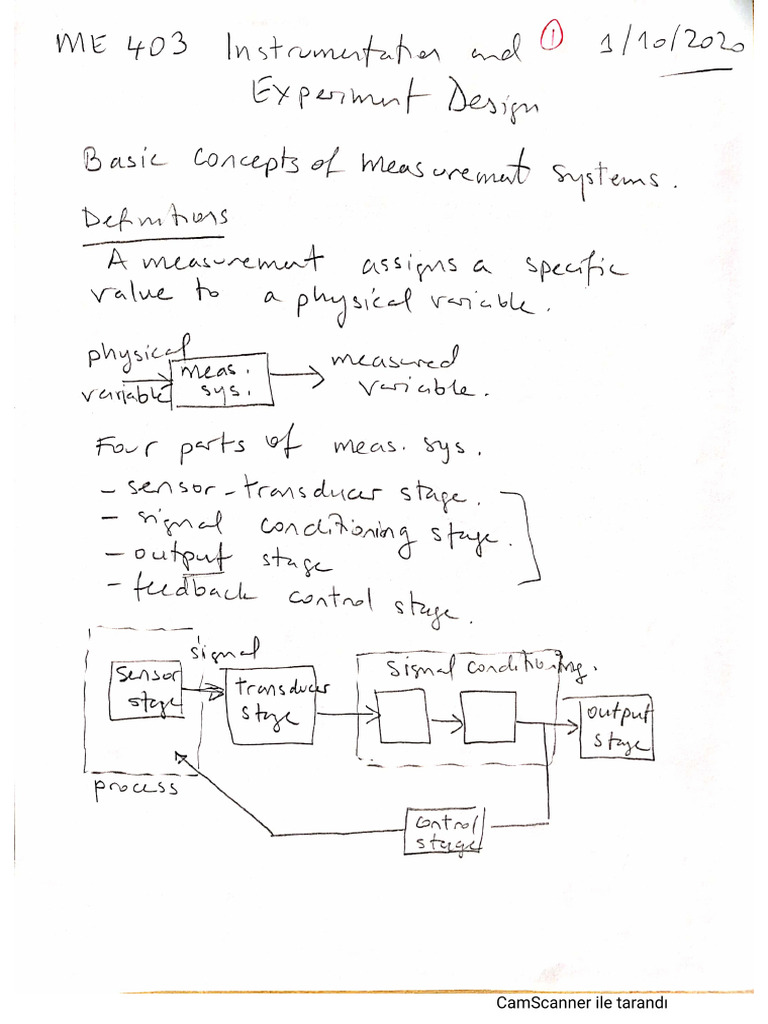 ME 403 Instrumentation and ① 1/10/2020
Experiment Design
Basic concepts of measurement systems.
Definitions
A measurement assigns a specific
value to a physical variable.
physical
variable
meas.
sys.
measured
variable.
Four parts of meas. sys.
- sensor-transducer stage.
- signal conditioning stage.
- output stage
- feedback control stage.
signal
sensor
stage
transducer
stage
signal conditioning.
output
stage
process
control
stage
CamScanner ile tarandı